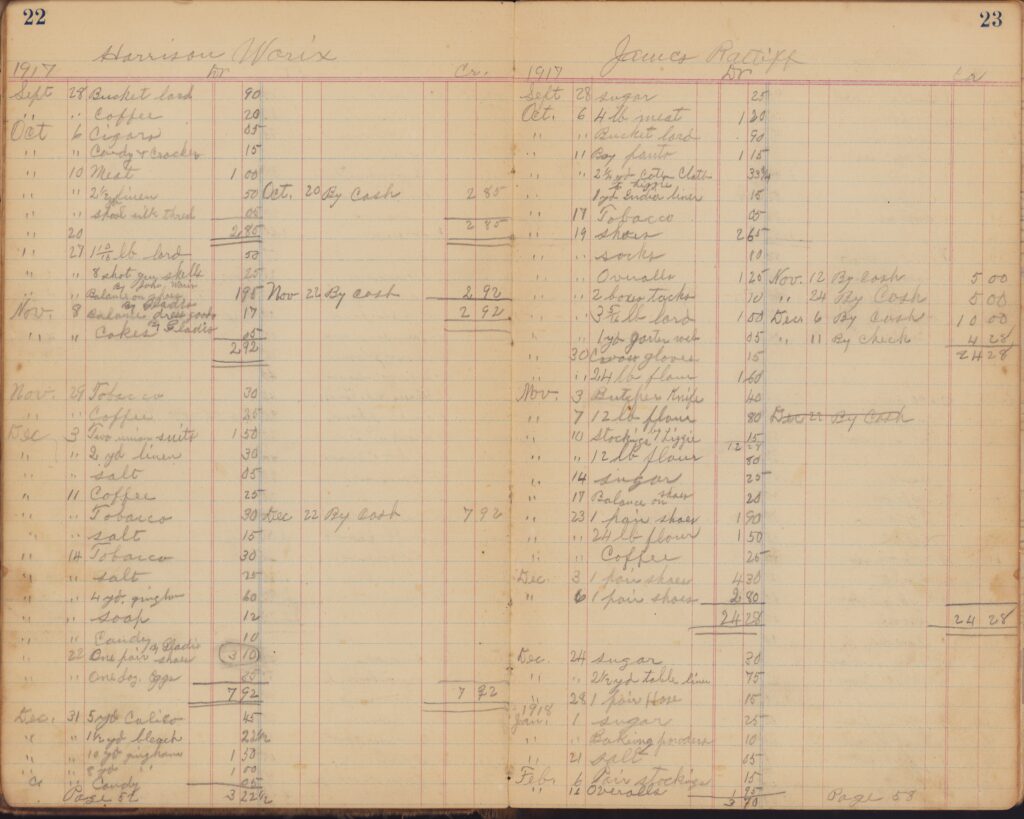 22
Harrison Worix
1917 Dr Cr.
Sept 28 Bucket lard 90
" " Coffee 20
Oct 6 Cigars 05
" " Candy & Cracker 15
" 10 Meat 1 00
" " 2½ yd linen 50 Oct. 20 By Cash 2 85
" " spool silk thred 05
" 20 2.85 2 85
" 27 1 10/16 lb lard 50
" " 8 shot gun shells 25
By John Worix
" " Balance on shoes 1 95 Nov 22 By Cash 2 92
By Gladis
Nov. 8 Balance dress goods 17 2 92
" " Cakes By Gladis 05
2 92
Nov. 29 Tobacco 30
" " Coffee 25
Dec 3 Two union suits 1 50
" " 2 yd linen 30
" " salt 05
" 11 Coffee 25
" " Tobacco 30 Dec 22 By Cash 7 92
" " salt 15
" 14 Tobacco 30
" " salt 25
" " 4 yd. gingham 60
" " soap 12
" " Candy 10
" 22 One pair shoes By Gladis 3 10
" " One doz. Eggs 35
7 92 7 92
Dec. 31 5 yd Calico 45
" " 1½ yd bleach 22½
" " 10 yd gingham 1 50
" " 8 yd " 1 00
" " Candy 05
Page 52 3 22½
23
James Ratliff
1917 Dr Cr
Sept 28 sugar 25
Oct. 6 4 lb meat 1 20
" " Bucket lard 90
" 11 Boy pants 1 15
" " 2¼ yd Coton Cloth 33¾
to Lizzie
" " 1 yd India linen 15
" 17 Tobacco 05
" 19 shoes 2 65
" " socks 10
" " Overalls 1 25 Nov. 12 By Cash 5 00
" " 2 boxes tacks 10 " 24 By Cash 5 00
" " lb lard 1 00 Dec 6 By Cash 10 00
" " 1 yd garter web 05 " 11 By Check 4 28
" 30 gloves 15 24 28
" " 24 lb flour 1 60
Nov. 3 Butcher Knife 40
" 7 12 lb flour 80 Dec 22 By Cash
" 10 Stockings By Lizzie 15
12 28
" " 12 lb flour 80
" 14 sugar 25
" 17 Balance on shoes 20
" 23 1 pair shoes 1 90
" " 24 lb flour 1 50
" " Coffee 25
Dec 3 1 pair shoes 4 30
" 6 1 pair shoes 2 80
24 28 24 28
Dec. 24 sugar 30
" " 2½ yd table linen 75
" 28 1 pair Hose 15
1918
Jan. 1 sugar 25
" " Baking powders 10
" 21 salt 05
Feb. 6 Pair stockings 15
" 16 Overalls 1 95
3 70 Page 53